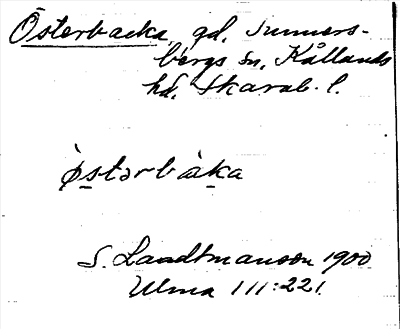 Österbacka, gd, Sunners-
bergs sn, Kållands
hd, Skarab. l.
ò̤stərbàka
S. Landtmanson 1900
Ulma 111:221.